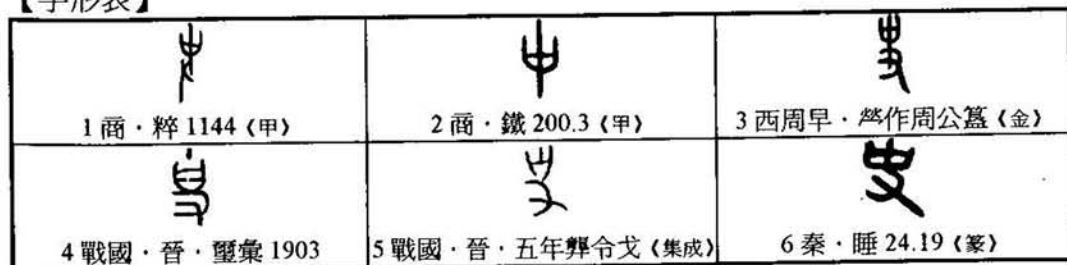 【字形表】
1 商·粹 1144《甲》
2 商·鐵 200.3《甲》
3 西周早·㷼作周公簋《金》
4 戰國·晉·璽彙 1903
5 戰國·晉·五年龏令戈《集成》
6 秦·睡 24.19《篆》